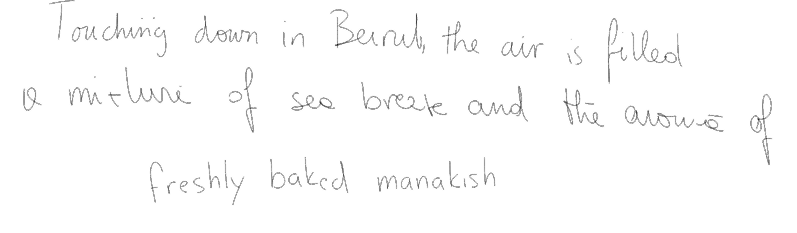 Touching down in Beirut, the air is filled
a mixture of sea breeze and the aroma of
freshly baked manakish